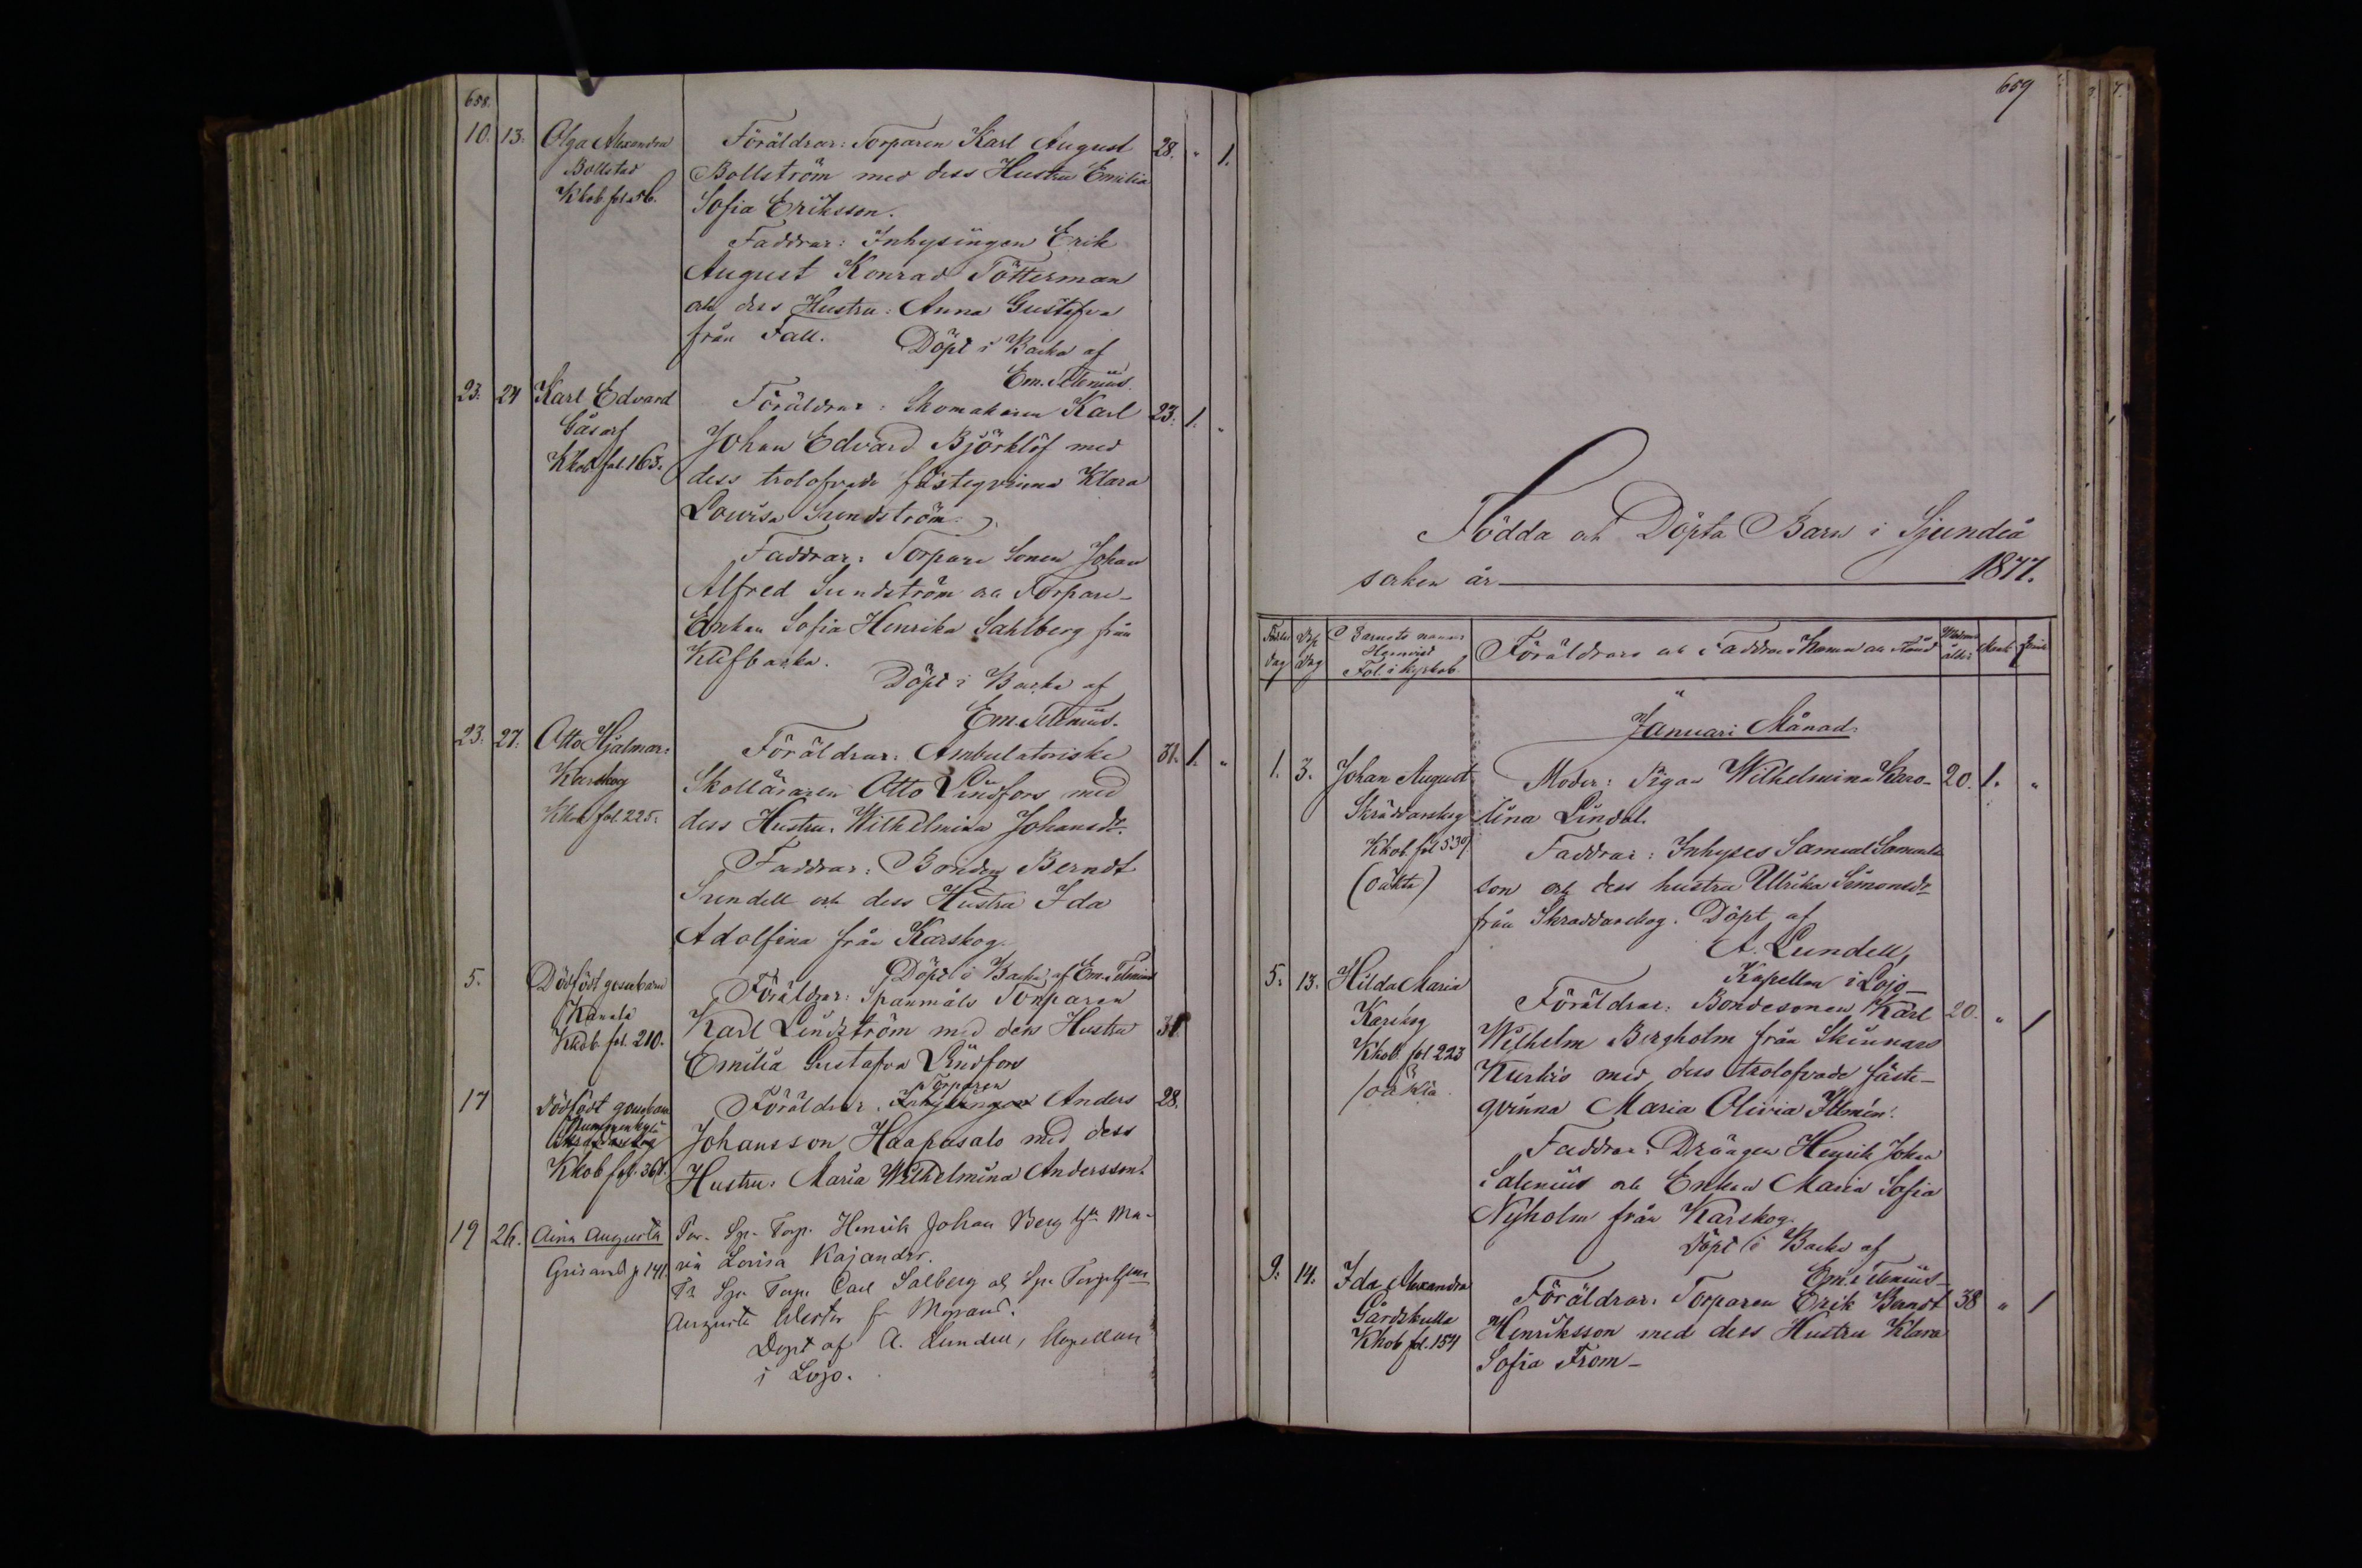 658.
10. 13. Olga Alexandra Föräldrar: Torparen Karl August 28. " 1.
Bollstad Bollström med dess Hustru Emilia
Kkob fol. 56. Sofia Eriksson.
Faddrar: Inhysingen Erik
August Konrad Tötterman
och dess Hustru: Anna Gustafva
från Fall. Döpt i Backa af
Em. Telenius.
23. 24 Karl Edvard Föräldrar: Skomakaren Karl 23. 1. "
Gåsarf Johan Edvard Björklöf med
Kkob fol. 163. dess trolofvade fästeqvinna Klara
Lovisa Sundström.
Faddrar: Torpare Sonen Johan
Alfred Sundström och Torpare-
Enkan Sofia Henrika Sahlberg från
Klefbacka.
Döpt i Backa af
Em. Telenius.
23. 27. Otto Hjalmar: Föräldrar: Ambulatoriske 31. 1. "
Karskog Skolläraren Otto Lindfors med
Kkob fol. 225. dess Hustru. Wilhelmina Johansdr.
Faddrar: Bonden Berndt
Sundell och dess Hustru Ida
Adolfina från Karskog.
Döpt i Backa af Em. Telenius
5. Dödfödt gossebarn Föräldrar: Spanmåls Torparen
Kanala Karl Lindström med dess Hustru 31.
Kkob. fol. 210. Emilia Gustafva Lindfors
Torparen
17 Dödfödt gossebarn Föräldrar: Inhysingen Anders 28.
Nummenkylä Johansson Haapasalo med dess
Kkob fol. 361. Hustru. Maria Wilhelmina Andersson.
19 26. Aina Augusta För. Spr. Torp. Henrik Johan Berg hu Ma-
Grisans p 141 ria Lovisa Kajander.
Fr Spr Torp. Carl Salberg och Spr Torp
Augusta Wester fr
Döpt af A. Lundell, Kapellan
i Lojo.
659
Födda och Döpta Barn i Sjundeå
socken år 1877.
Födelse Döp Barnets namn Föräldrars och Faddrars Namn och Stånd Modrens Mank Qvink
dag dag Hemvist ålder
Fol. i kyrkob.
Januari Månad.
1. 3. Johan August Moder: Pigan Wilhelmina Karo- 20. 1. "
Skräddarskog lina Lindal.
Kkob. fol 539 Faddrar: Inhyses Samuel Samuels
(oäkta) son och dess hustru Ulrika Simonsdr
från Skräddarskog. Döpt af
A. Lundell,
Kapellan i Lojo
5. 13. Hilda Maria Föräldrar: Bondesonen Karl 20. " 1
Karskog Wilhelm Bergholm från Skinnars
Kkob. fol. 223 Kurkis med dess trolofvade fäste-
(oäkta qvinna Maria Olivia Illmén.
Faddrar: Drängen Henrik Johan
Salenius och Enkan Maria Sofia
Nyholm från Karskog.
Döpt i Backa af
Em. Telenius
9. 14. Ida Alexandra Föräldrar. Torparen Erik Berndt 38 " 1
Gårdskulla Henriksson med dess Hustru Klara
Kkob fol. 154 Sofia From-